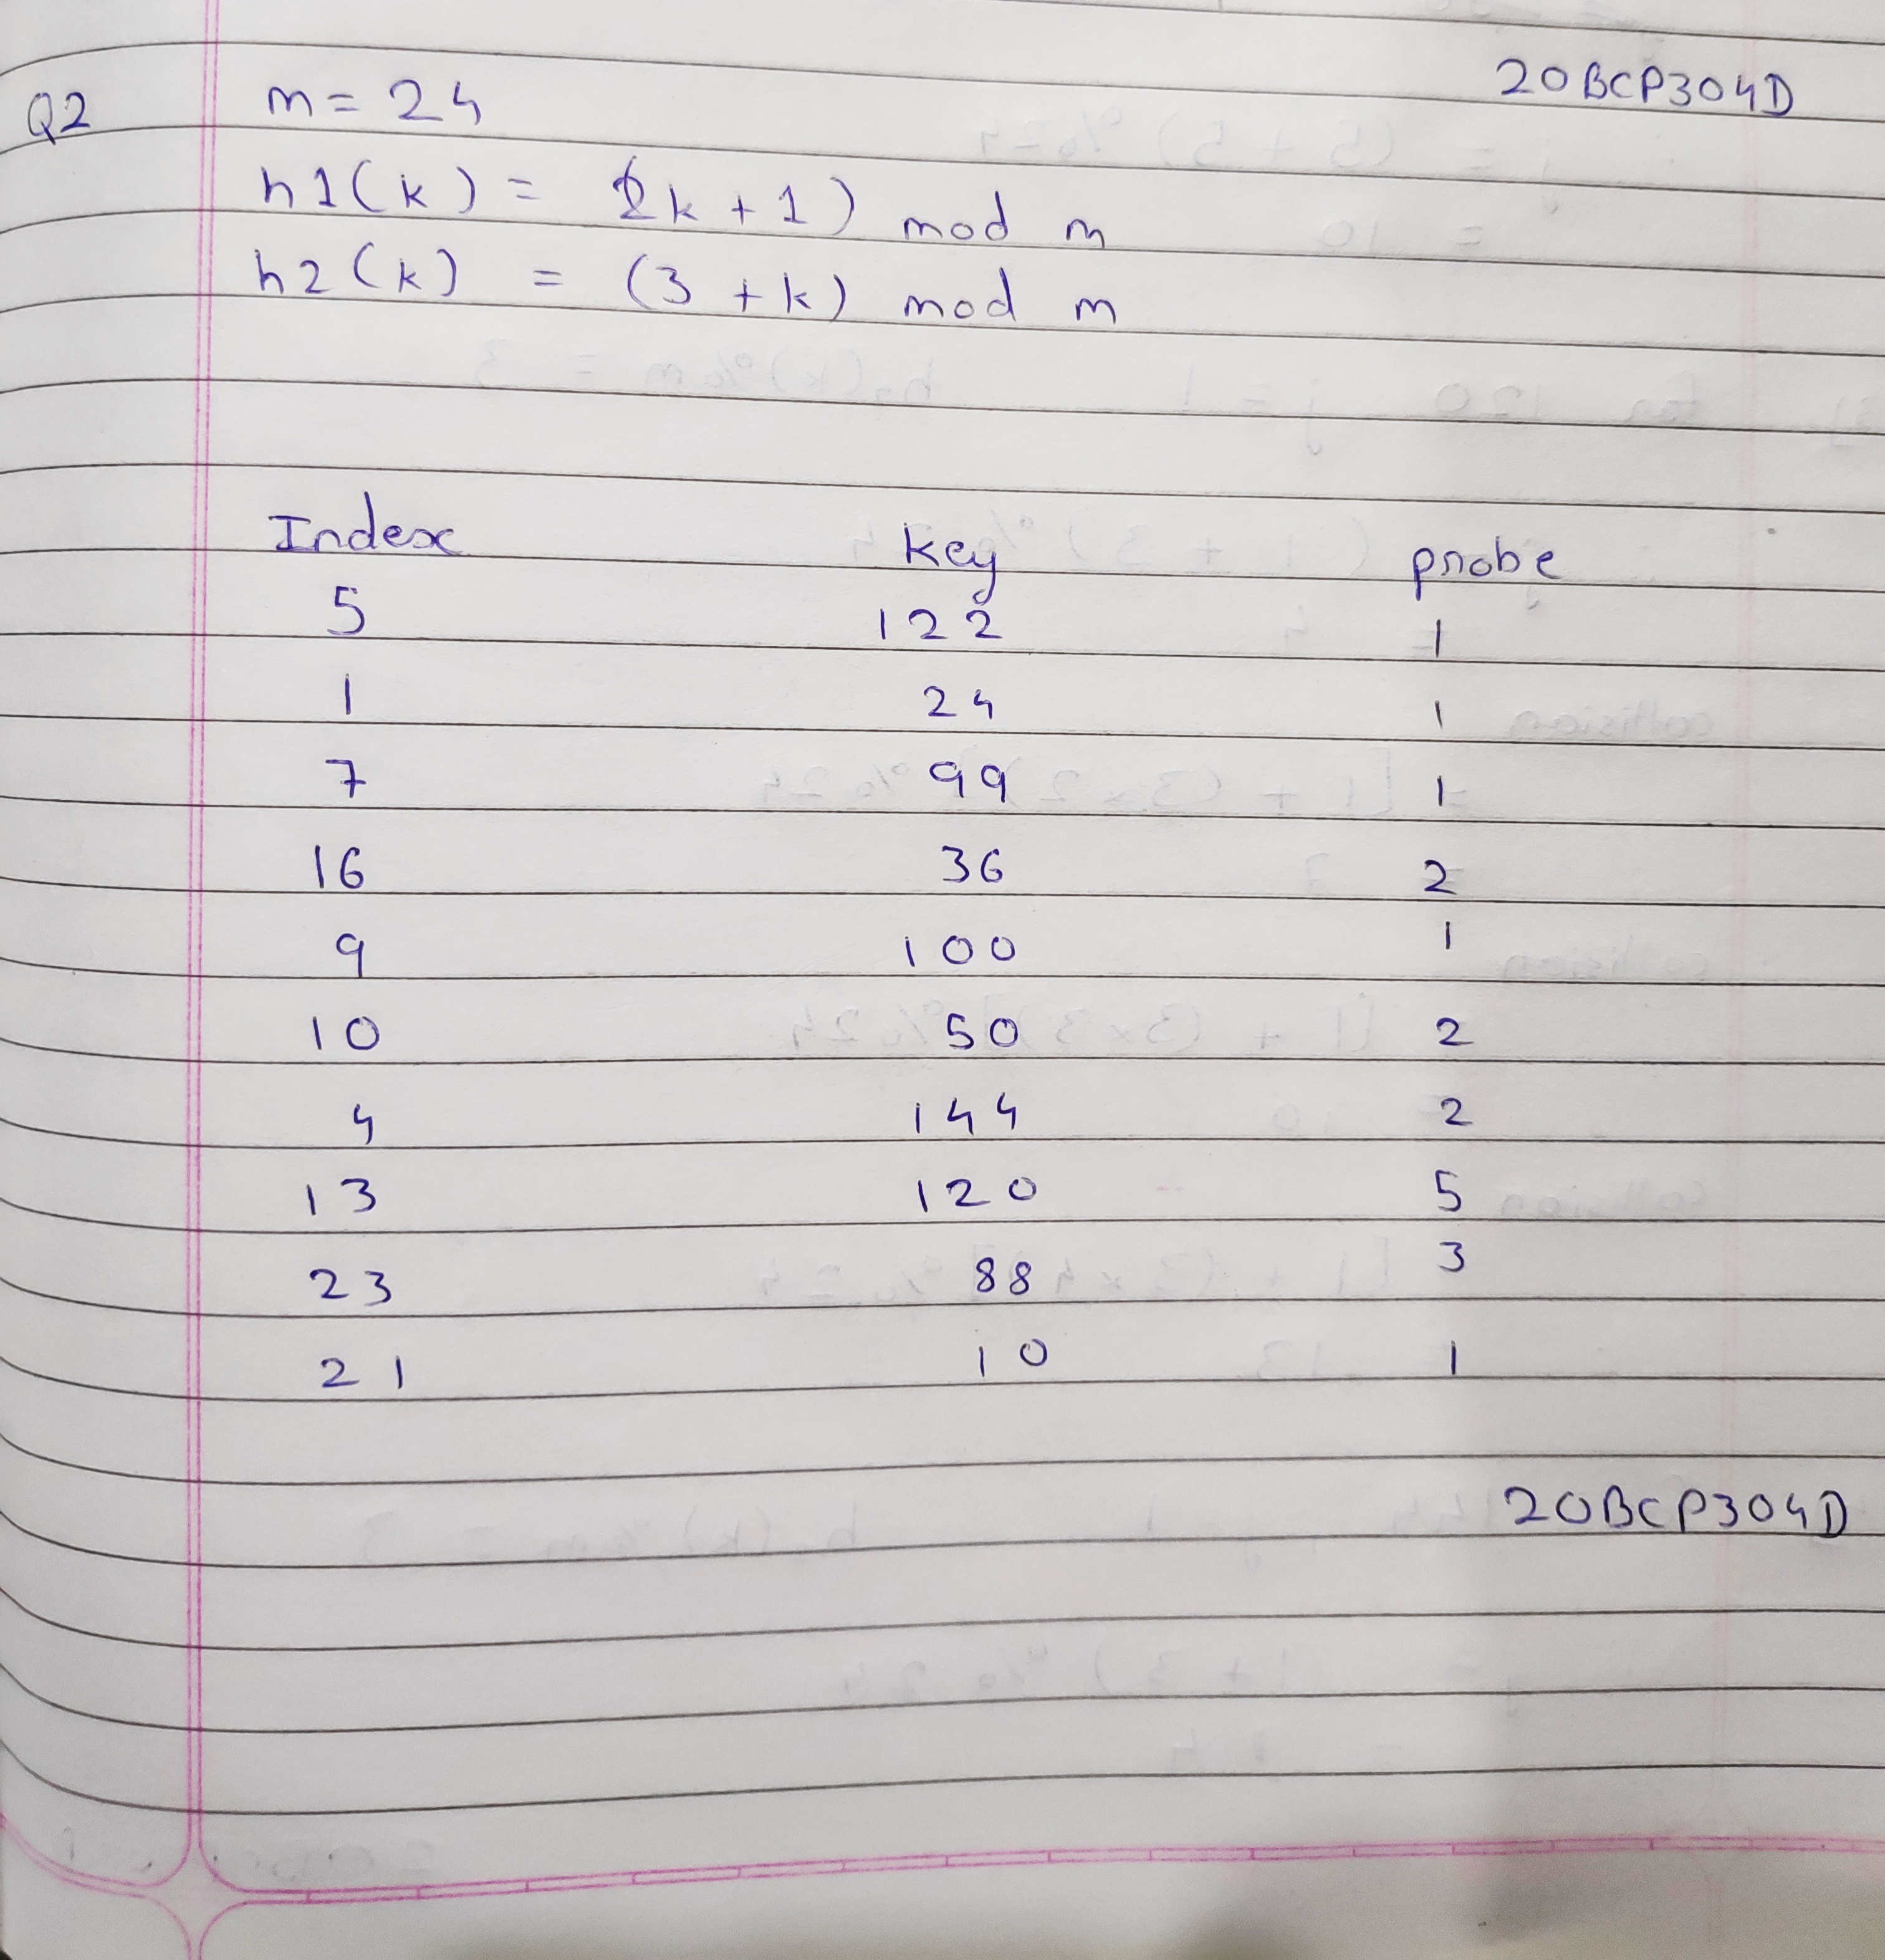 20BCP304D
Q2 m = 24
h1(k) = (2k + 1) mod m
h2(k) = (3 + k) mod m
Index key probe
5 122 1
1 24 1
7 99 1
16 36 2
9 100 1
10 50 2
4 144 2
13 120 5
23 88 3
21 10 1
20BCP304D